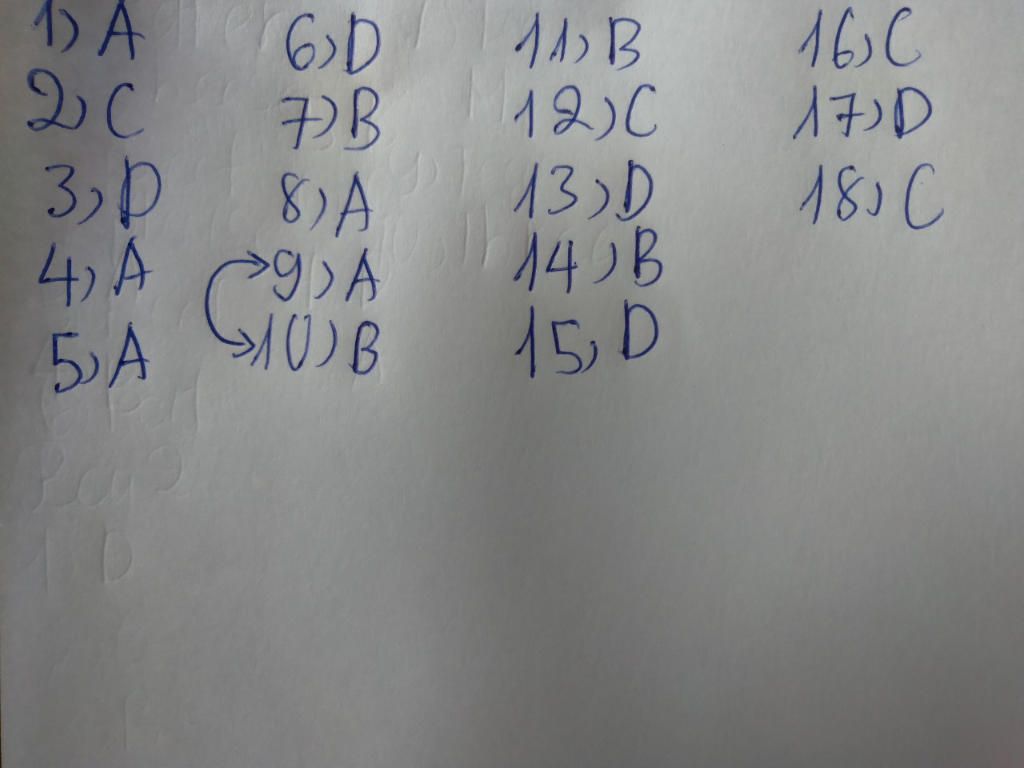 1) A
2) C
3) D
4) A
5) A
6) D
7) B
8) A
9) A
10) B
11) B
12) C
13) D
14) B
15) D
16) C
17) D
18) C